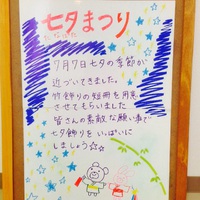 七夕まつり
たなばた
7月7日七夕の季節が
近づいてきました。
竹飾りの短冊を用意
させてもらいました
皆さんの素敵な願い事で
七夕飾りを いっぱいに
しましょう☆☆